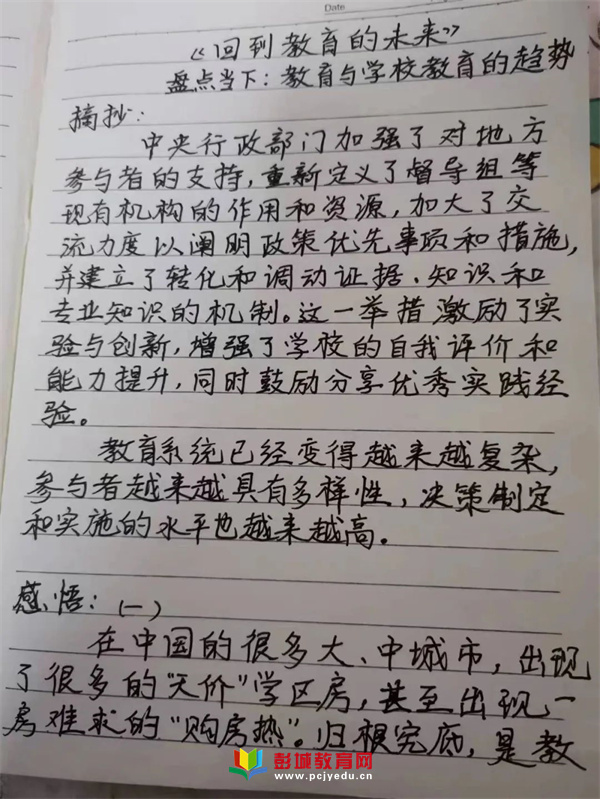 Date
《回到教育的未来》
盘点当下：教育与学校教育的趋势
摘抄：
中央行政部门加强了对地方
参与者的支持，重新定义了督导组等
现有机构的作用和资源，加大了交
流力度以阐明政策优先事项和措施，
并建立了转化和调动证据、知识和
专业知识的机制。这一举措激励了实
验与创新，增强了学校的自我评价和
能力提升，同时鼓励分享优秀实践经
验。
教育系统已经变得越来越复杂，
参与者越来越具有多样性，决策制定
和实施的水平也越来越高。
感悟：（一）
在中国的很多大、中城市，出现
了很多的“天价”学区房，甚至出现一
房难求的“购房热”。归根究底，是教
彭城教育网
www.pcjyedu.cn